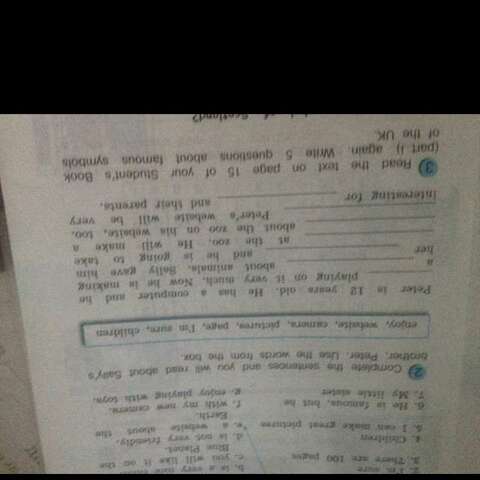 2. I'm sure
3. There are 100 pages
4. Children
5. I can make great pictures
6. He is famous, but he
7. My little sister
b. is a very cute
c. you will like it on the
Blue Planet.
d. is not very friendly.
e. a website about the
Earth.
f. with my new camera.
g. enjoy playing with toys.
2 Complete the sentences and you will read about Sally's
brother, Peter. Use the words from the box.
enjoy, website, camera, pictures, page, I'm sure, children
Peter is 12 years old. He has a computer and he
playing on it very much. Now he is making
a about animals. Sally gave him
her and he is going to take
at the zoo. He will make a
about the zoo on his website, too.
Peter's website will be very
interesting for and their parents.
3 Read the text on page 15 of your Student's Book
(part I) again. Write 5 questions about famous symbols
of the UK.
of Scotland?